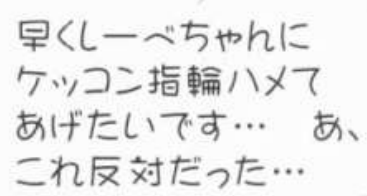 早くしーべちゃんに
ケッコン指輪ハメて
あげたいです… あ、
これ反対だった…